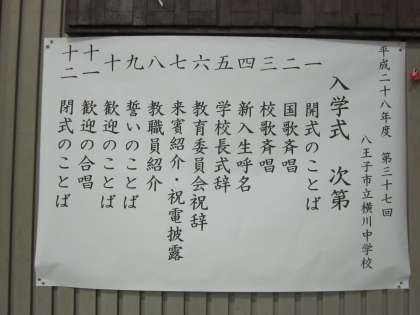 平成二十八年度　第三十七回
八王子市立横川中学校
入学式　次第
一　開式のことば
二　国歌斉唱
三　校歌斉唱
四　新入生呼名
五　学校長式辞
六　教育委員会祝辞
七　来賓紹介・祝電披露
八　教職員紹介
九　誓いのことば
十　歓迎のことば
十一　歓迎の合唱
十二　閉式のことば